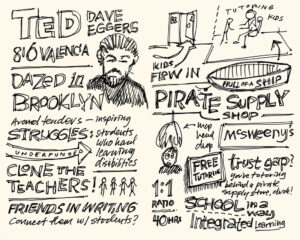 TED
DAVE
EGGERS
816 VALENCIA
DAZED in
BROOKLYN
Around tenders - inspiring
STRUGGLES: students
who had
learning
disabilities
UNDERFUNDED
CLONE THE
TEACHERS!
FRIENDS IN WRITING
Connect them w/ students?
TUTORING
KIDS
KIDS
FLOW IN
HULL OF A SHIP
PIRATE SUPPLY
SHOP
mop
head
dump
McSweeny's
FREE
TUTORING
trust gap?
you're tutoring
behind a pirate
supply store, dude!
1:1
RATIO
40 HRS
SCHOOL in a
way
Integrated Learning